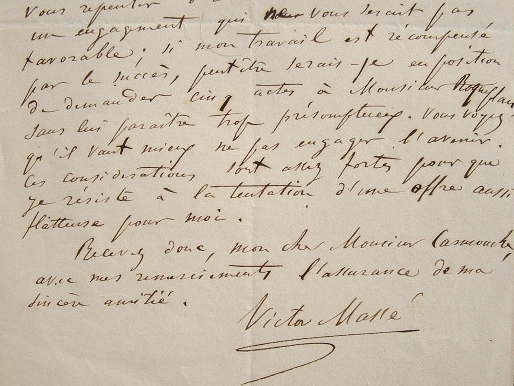 Vous repentir d
un engagement qui vous serait pas
favorable. si mon travail est récompensé
par le succès, peutêtre serais-je en position
de demander cinq actes à Monsieur Roqueplan
sans lui paraître trop présomptueux. Vous voyez
qu'il vaut mieux ne pas engager l'avenir.
Ces considérations sont assez fortes pour que
je résiste à la tentation d'une offre aussi
flatteuse pour moi.
Recevez donc, mon cher Monsieur Carmouche,
avec mes remerciements l'assurance de ma
sincère amitié.
Victor Massé